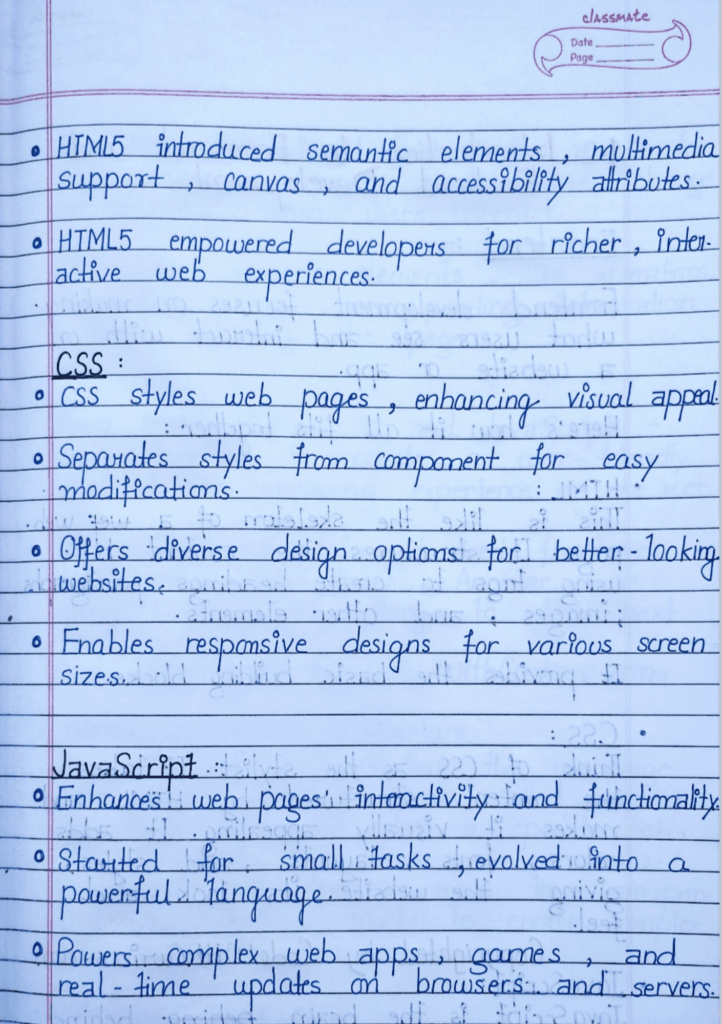 classmate
Date
Page
HTML5 introduced semantic elements, multimedia
support, canvas, and accessibility attributes.
HTML5 empowered developers for richer, inter-
active web experiences.
CSS :
CSS styles web pages, enhancing visual appeal.
Separates styles from component for easy
modifications.
Offers diverse design options for better-looking
websites.
Enables responsive designs for various screen
sizes.
JavaScript :
Enhances web pages' interactivity and functionality.
Started for small tasks, evolved into a
powerful language.
Powers complex web apps, games, and
real-time updates on browsers and servers.